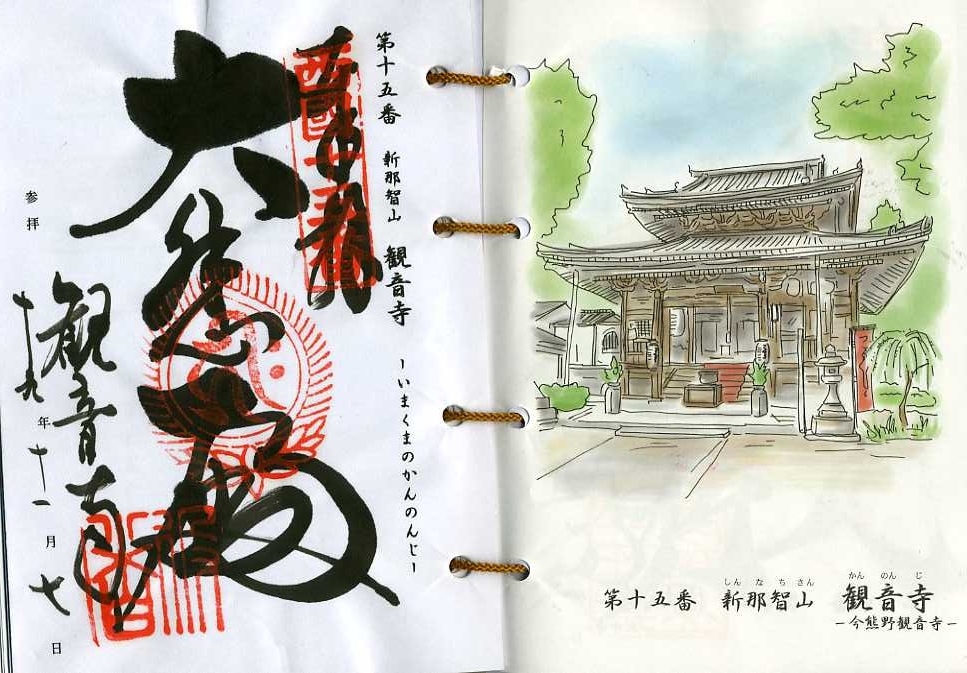 第十五番 新那智山 観音寺 -いまくまのかんのんじ-
大悲
観音寺
参拝 十九年十一月七日
しんなちさん かんのんじ
第十五番 新那智山 観音寺
-今熊野観音寺-